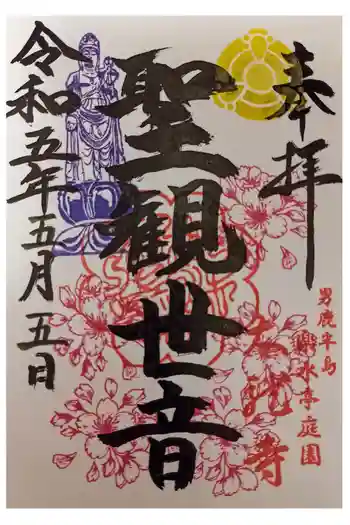 奉拝
聖観世音
令和五年五月五日
男鹿半島
樂水亭庭園
大龍寺